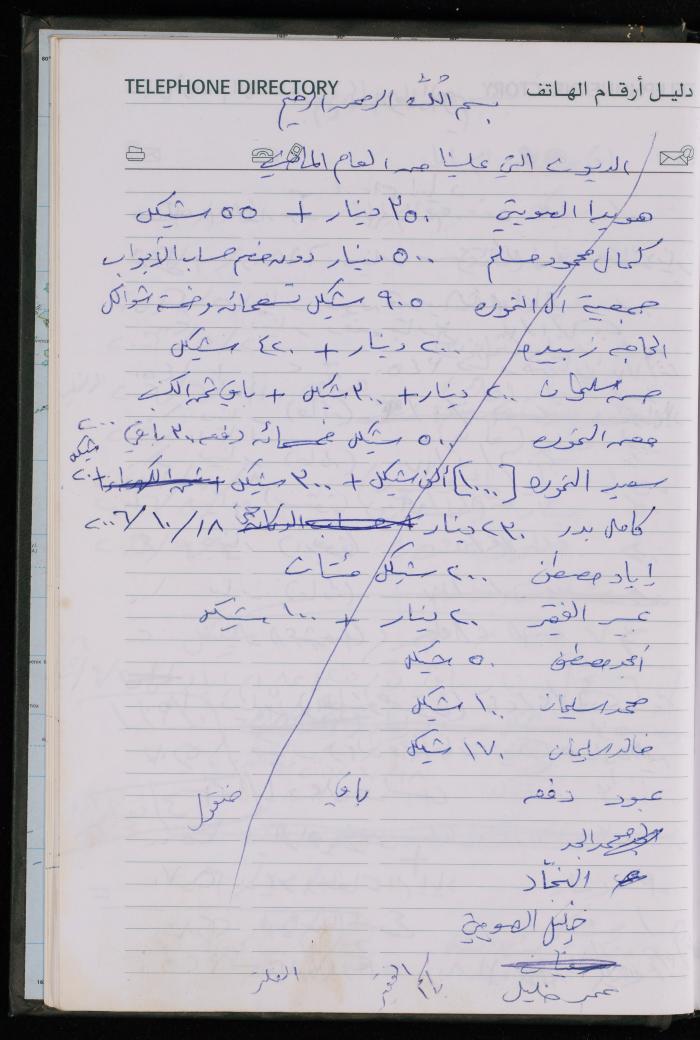 TELEPHONE DIRECTORY دليل أرقام الهاتف
بسم الله الرحمن الرحيم
الديون التي علينا من العام الماضي
هويدا الصويتي ٢٥٠ دينار + ٥٥ شيكل
كمال محمود مسلم ٥٠٠ دينار دون خصم حساب الأبواب
جمعية آل النمورة ٩٠٥ شيكل تسعمائة وخمسة شواكل
الحاجه زبيده ٢٠٠ دينار + ٤٢٠ شيكل
حسن سليمان ٢٠٠ دينار + ٣٠٠ شيكل + باقي ثمن الكنب
النموره ٥٠٠ شيكل خمسمائة دفعه ٣٠٠ باقي ٢٠٠ شيكل
سمير النموره [١٠٠٠] ألف شيكل + ٣٠٠ شيكل + ثمن الكهرباء + ٢٠٠
كامل بدر ٢٣٠ دينار + حساب الدكانة حتى ٢٠٠٦/١٠/١٨
إياد مصطفى ٢٠٠ شيكل مئتان
عبير الفقير ٢٠ دينار + ١٠٠ شيكل
أمجد مصطفى ٥٠ شيكل
محمد سليمان ١٠٠ شيكل
خالد سليمان ١٧٠ شيكل
عبود دفعه باقي منقول
محمد الجد
النجّاد
خليل الصويتي
سفيان
عمر خليل الفقير